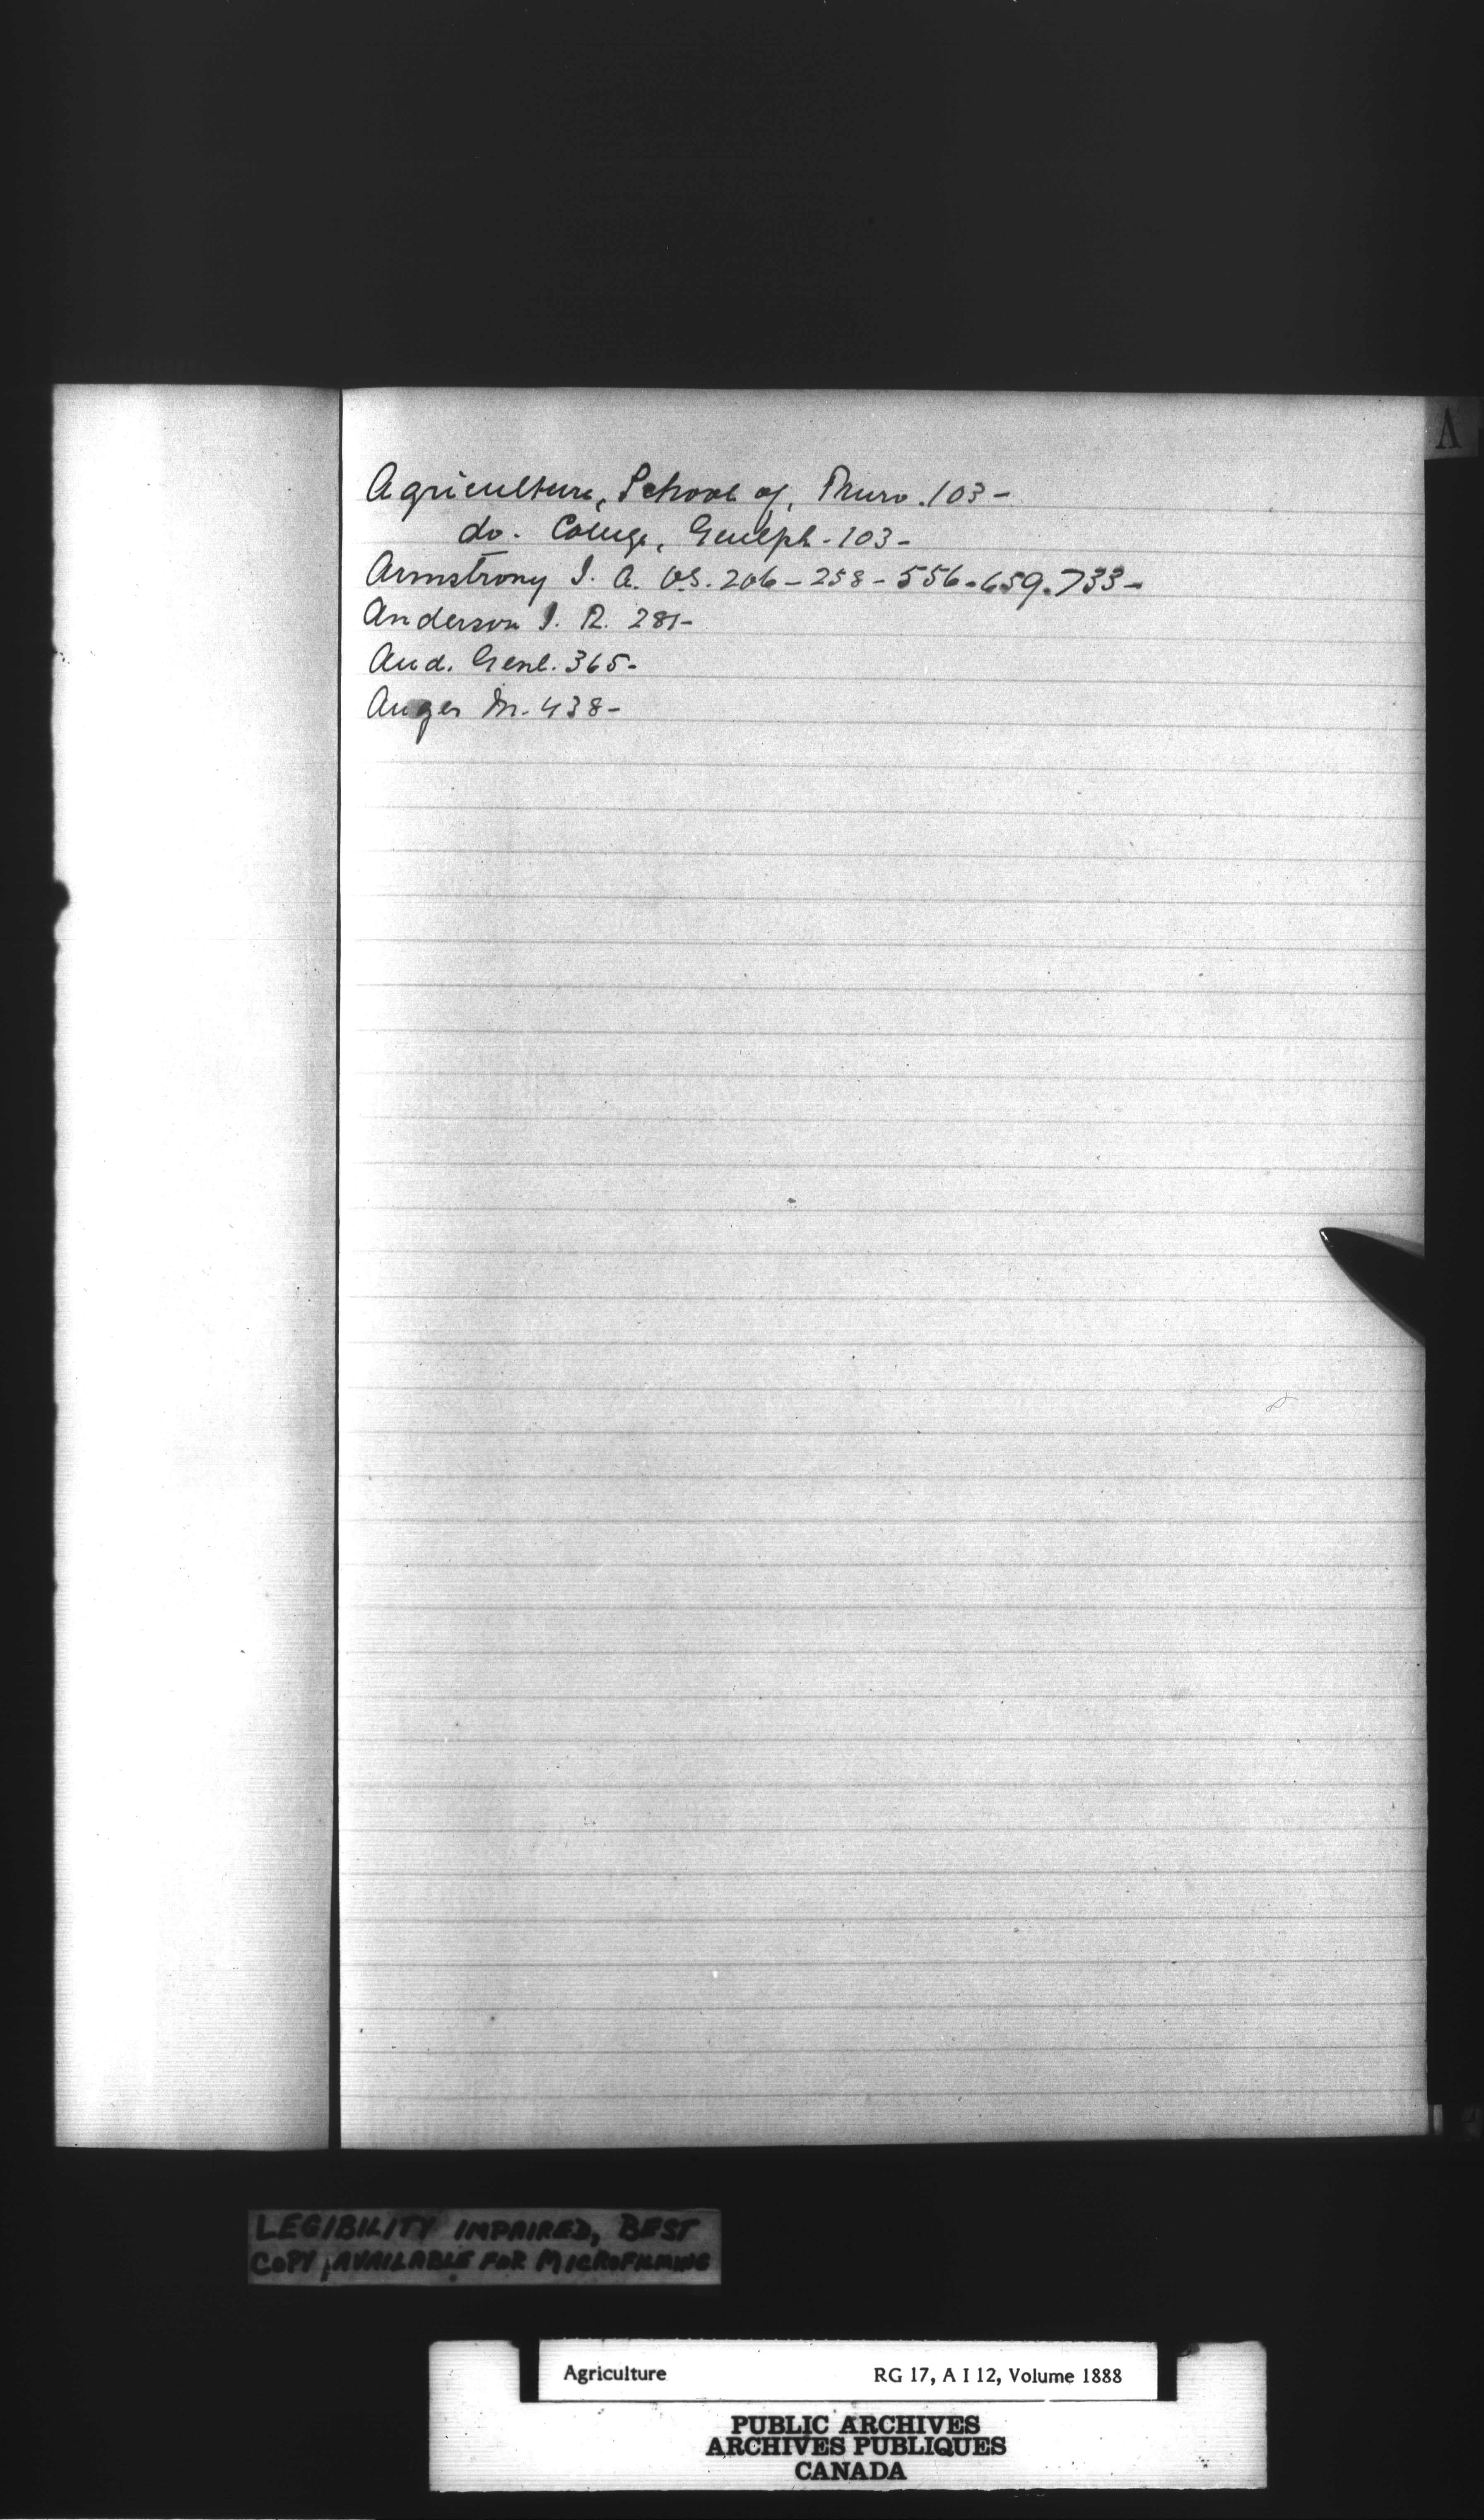 A
Agriculture, School of, Truro. 103-
do. College, Guelph - 103-
Armstrong J. A. V.S. 206 - 258 - 556 - 659. 733-
Anderson J. R. 281-
Aud. Genl. 365-
Auger M. 438-
LEGIBILITY IMPAIRED, BEST
COPY AVAILABLE FOR MICROFILMING
Agriculture RG 17, A I 12, Volume 1888
PUBLIC ARCHIVES
ARCHIVES PUBLIQUES
CANADA